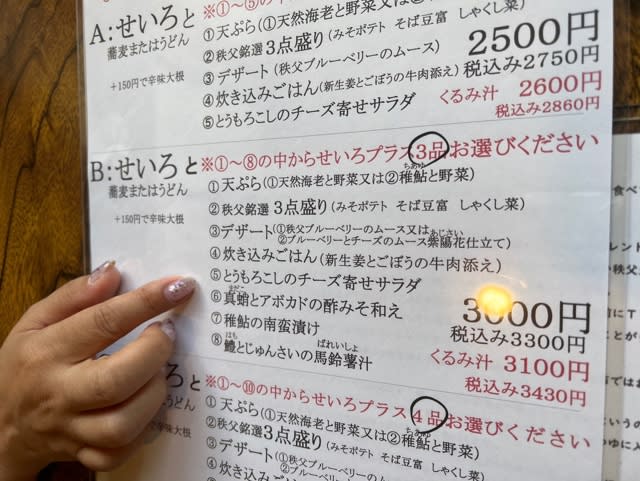 A:せいろと
蕎麦またはうどん
+150円で辛味大根
①天ぷら(①天然海老と野菜又は②
②秩父銘選3点盛り(みそポテト そば豆富 しゃくし菜)
③デザート(秩父ブルーベリーのムース)
④炊き込みごはん(新生姜とごぼうの牛肉添え)
⑤とうもろこしのチーズ寄せサラダ
2500円
税込み2750円
くるみ汁 2600円
税込み2860円
B:せいろと ※①〜⑧の中からせいろプラス3品お選びください
蕎麦またはうどん
+150円で辛味大根
①天ぷら(①天然海老と野菜又は②稚鮎と野菜)
ちあゆ
②秩父銘選3点盛り(みそポテト そば豆富 しゃくし菜)
③デザート(①秩父ブルーベリーのムース又は
②ブルーベリーとチーズのムース紫陽花仕立て)
あじさい
④炊き込みごはん(新生姜とごぼうの牛肉添え)
⑤とうもろこしのチーズ寄せサラダ
⑥真蛸とアボカドの酢みそ和え
まだこ
⑦稚鮎の南蛮漬け
⑧鱧とじゅんさいの馬鈴薯汁
はも ばれいしょ
3000円
税込み3300円
くるみ汁 3100円
税込み3430円
いろと ※①〜⑩の中からせいろプラス4品お選びください
うどん
辛味大根
①天ぷら(①天然海老と野菜又は②稚鮎と野菜)
ちあゆ
②秩父銘選3点盛り(みそポテト そば豆富 しゃくし菜)
③デザート(①秩父ブルーベリーのムース又は
②ブルーベリーとチーズのムース
④炊き込みごはん